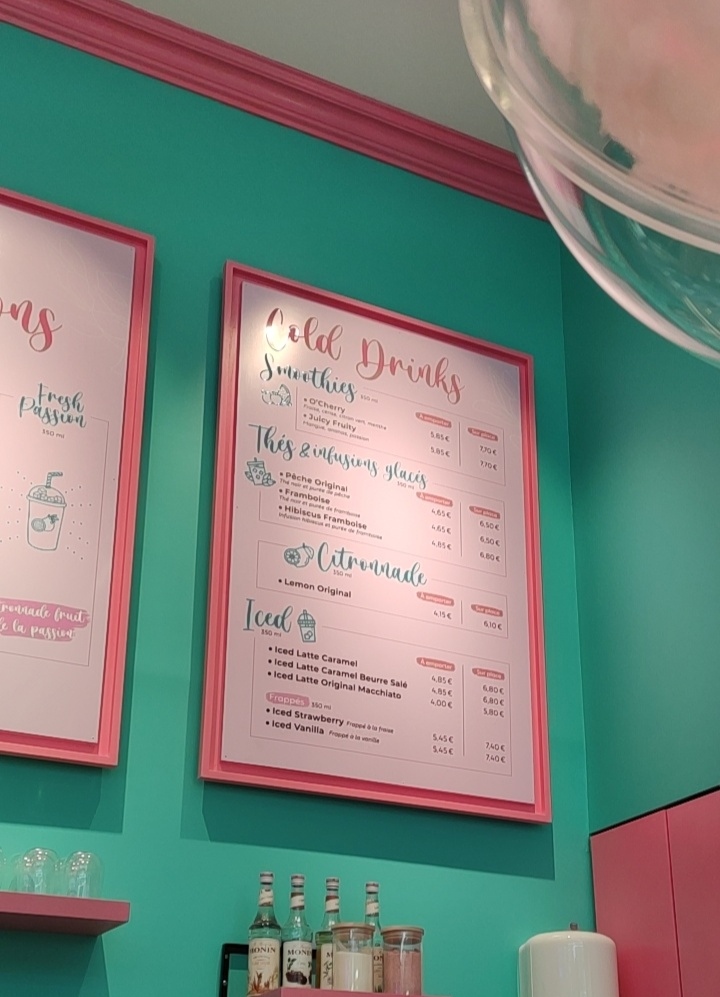 ons
Fresh
Passion
350 ml
tronnade fruit
de la passion
Cold Drinks
Smoothies 350 ml
À emporter Sur place
• O'Cherry 5,85 € 7,70 €
Fraise, cerise, citron vert, menthe
• Juicy Fruity 5,85 € 7,70 €
Mangue, ananas, passion
Thés & infusions glacés
350 ml
À emporter Sur place
• Pêche Original 4,65 € 6,50 €
Thé noir et purée de pêche
• Framboise 4,65 € 6,50 €
Thé noir et purée de framboise
• Hibiscus Framboise 4,85 € 6,80 €
Infusion hibiscus et purée de framboise
Citronnade
350 ml
À emporter Sur place
• Lemon Original 4,15 € 6,10 €
Iced
350 ml
À emporter Sur place
• Iced Latte Caramel 4,85 € 6,80 €
• Iced Latte Caramel Beurre Salé 4,85 € 6,80 €
• Iced Latte Original Macchiato 4,00 € 5,80 €
Frappés 350 ml
• Iced Strawberry Frappé à la fraise 5,45 € 7,40 €
• Iced Vanilla Frappé à la vanille 5,45 € 7,40 €
MONIN
MONI